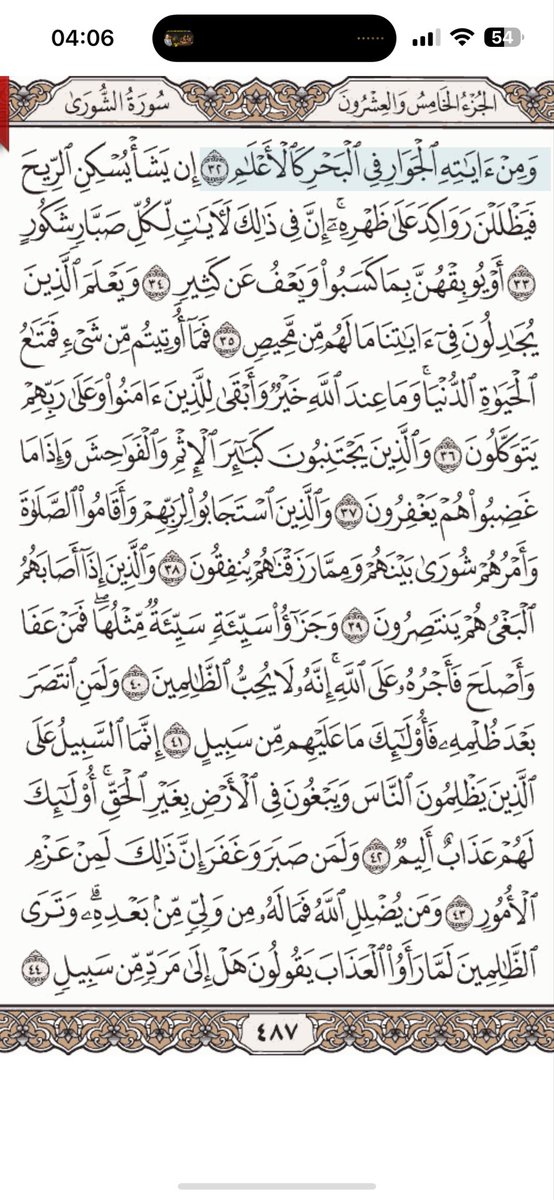 04:06
54
سُورَةُ الشُّورَىٰ
الجُزْءُ الخَامِسُ وَالعِشْرُونَ
وَمِنْ ءَايَٰتِهِ ٱلْجَوَارِ فِى ٱلْبَحْرِ كَٱلْأَعْلَٰمِ ٣٢ إِن يَشَأْ يُسْكِنِ ٱلرِّيحَ
فَيَظْلَلْنَ رَوَاكِدَ عَلَىٰ ظَهْرِهِۦٓ ۚ إِنَّ فِى ذَٰلِكَ لَـَٔايَٰتٍ لِّكُلِّ صَبَّارٍ شَكُورٍ
٣٣ أَوْ يُوبِقْهُنَّ بِمَا كَسَبُوا۟ وَيَعْفُ عَن كَثِيرٍ ٣٤ وَيَعْلَمَ ٱلَّذِينَ
يُجَٰدِلُونَ فِىٓ ءَايَٰتِنَا مَا لَهُم مِّن مَّحِيصٍ ٣٥ فَمَآ أُوتِيتُم مِّن شَىْءٍ فَمَتَٰعُ
ٱلْحَيَوٰةِ ٱلدُّنْيَا ۖ وَمَا عِندَ ٱللَّهِ خَيْرٌ وَأَبْقَىٰ لِلَّذِينَ ءَامَنُوا۟ وَعَلَىٰ رَبِّهِمْ
يَتَوَكَّلُونَ ٣٦ وَٱلَّذِينَ يَجْتَنِبُونَ كَبَٰٓئِرَ ٱلْإِثْمِ وَٱلْفَوَٰحِشَ وَإِذَا مَا
غَضِبُوا۟ هُمْ يَغْفِرُونَ ٣٧ وَٱلَّذِينَ ٱسْتَجَابُوا۟ لِرَبِّهِمْ وَأَقَامُوا۟ ٱلصَّلَوٰةَ
وَأَمْرُهُمْ شُورَىٰ بَيْنَهُمْ وَمِمَّا رَزَقْنَٰهُمْ يُنفِقُونَ ٣٨ وَٱلَّذِينَ إِذَآ أَصَابَهُمُ
ٱلْبَغْىُ هُمْ يَنتَصِرُونَ ٣٩ وَجَزَٰٓؤُا۟ سَيِّئَةٍ سَيِّئَةٌ مِّثْلُهَا ۖ فَمَنْ عَفَا
وَأَصْلَحَ فَأَجْرُهُۥ عَلَى ٱللَّهِ ۚ إِنَّهُۥ لَا يُحِبُّ ٱلظَّٰلِمِينَ ٤٠ وَلَمَنِ ٱنتَصَرَ
بَعْدَ ظُلْمِهِۦ فَأُو۟لَٰٓئِكَ مَا عَلَيْهِم مِّن سَبِيلٍ ٤١ إِنَّمَا ٱلسَّبِيلُ عَلَى
ٱلَّذِينَ يَظْلِمُونَ ٱلنَّاسَ وَيَبْغُونَ فِى ٱلْأَرْضِ بِغَيْرِ ٱلْحَقِّ ۚ أُو۟لَٰٓئِكَ
لَهُمْ عَذَابٌ أَلِيمٌ ٤٢ وَلَمَن صَبَرَ وَغَفَرَ إِنَّ ذَٰلِكَ لَمِنْ عَزْمِ
ٱلْأُمُورِ ٤٣ وَمَن يُضْلِلِ ٱللَّهُ فَمَا لَهُۥ مِن وَلِىٍّ مِّنۢ بَعْدِهِۦ ۗ وَتَرَى
ٱلظَّٰلِمِينَ لَمَّا رَأَوُا۟ ٱلْعَذَابَ يَقُولُونَ هَلْ إِلَىٰ مَرَدٍّ مِّن سَبِيلٍ ٤٤
٤٨٧